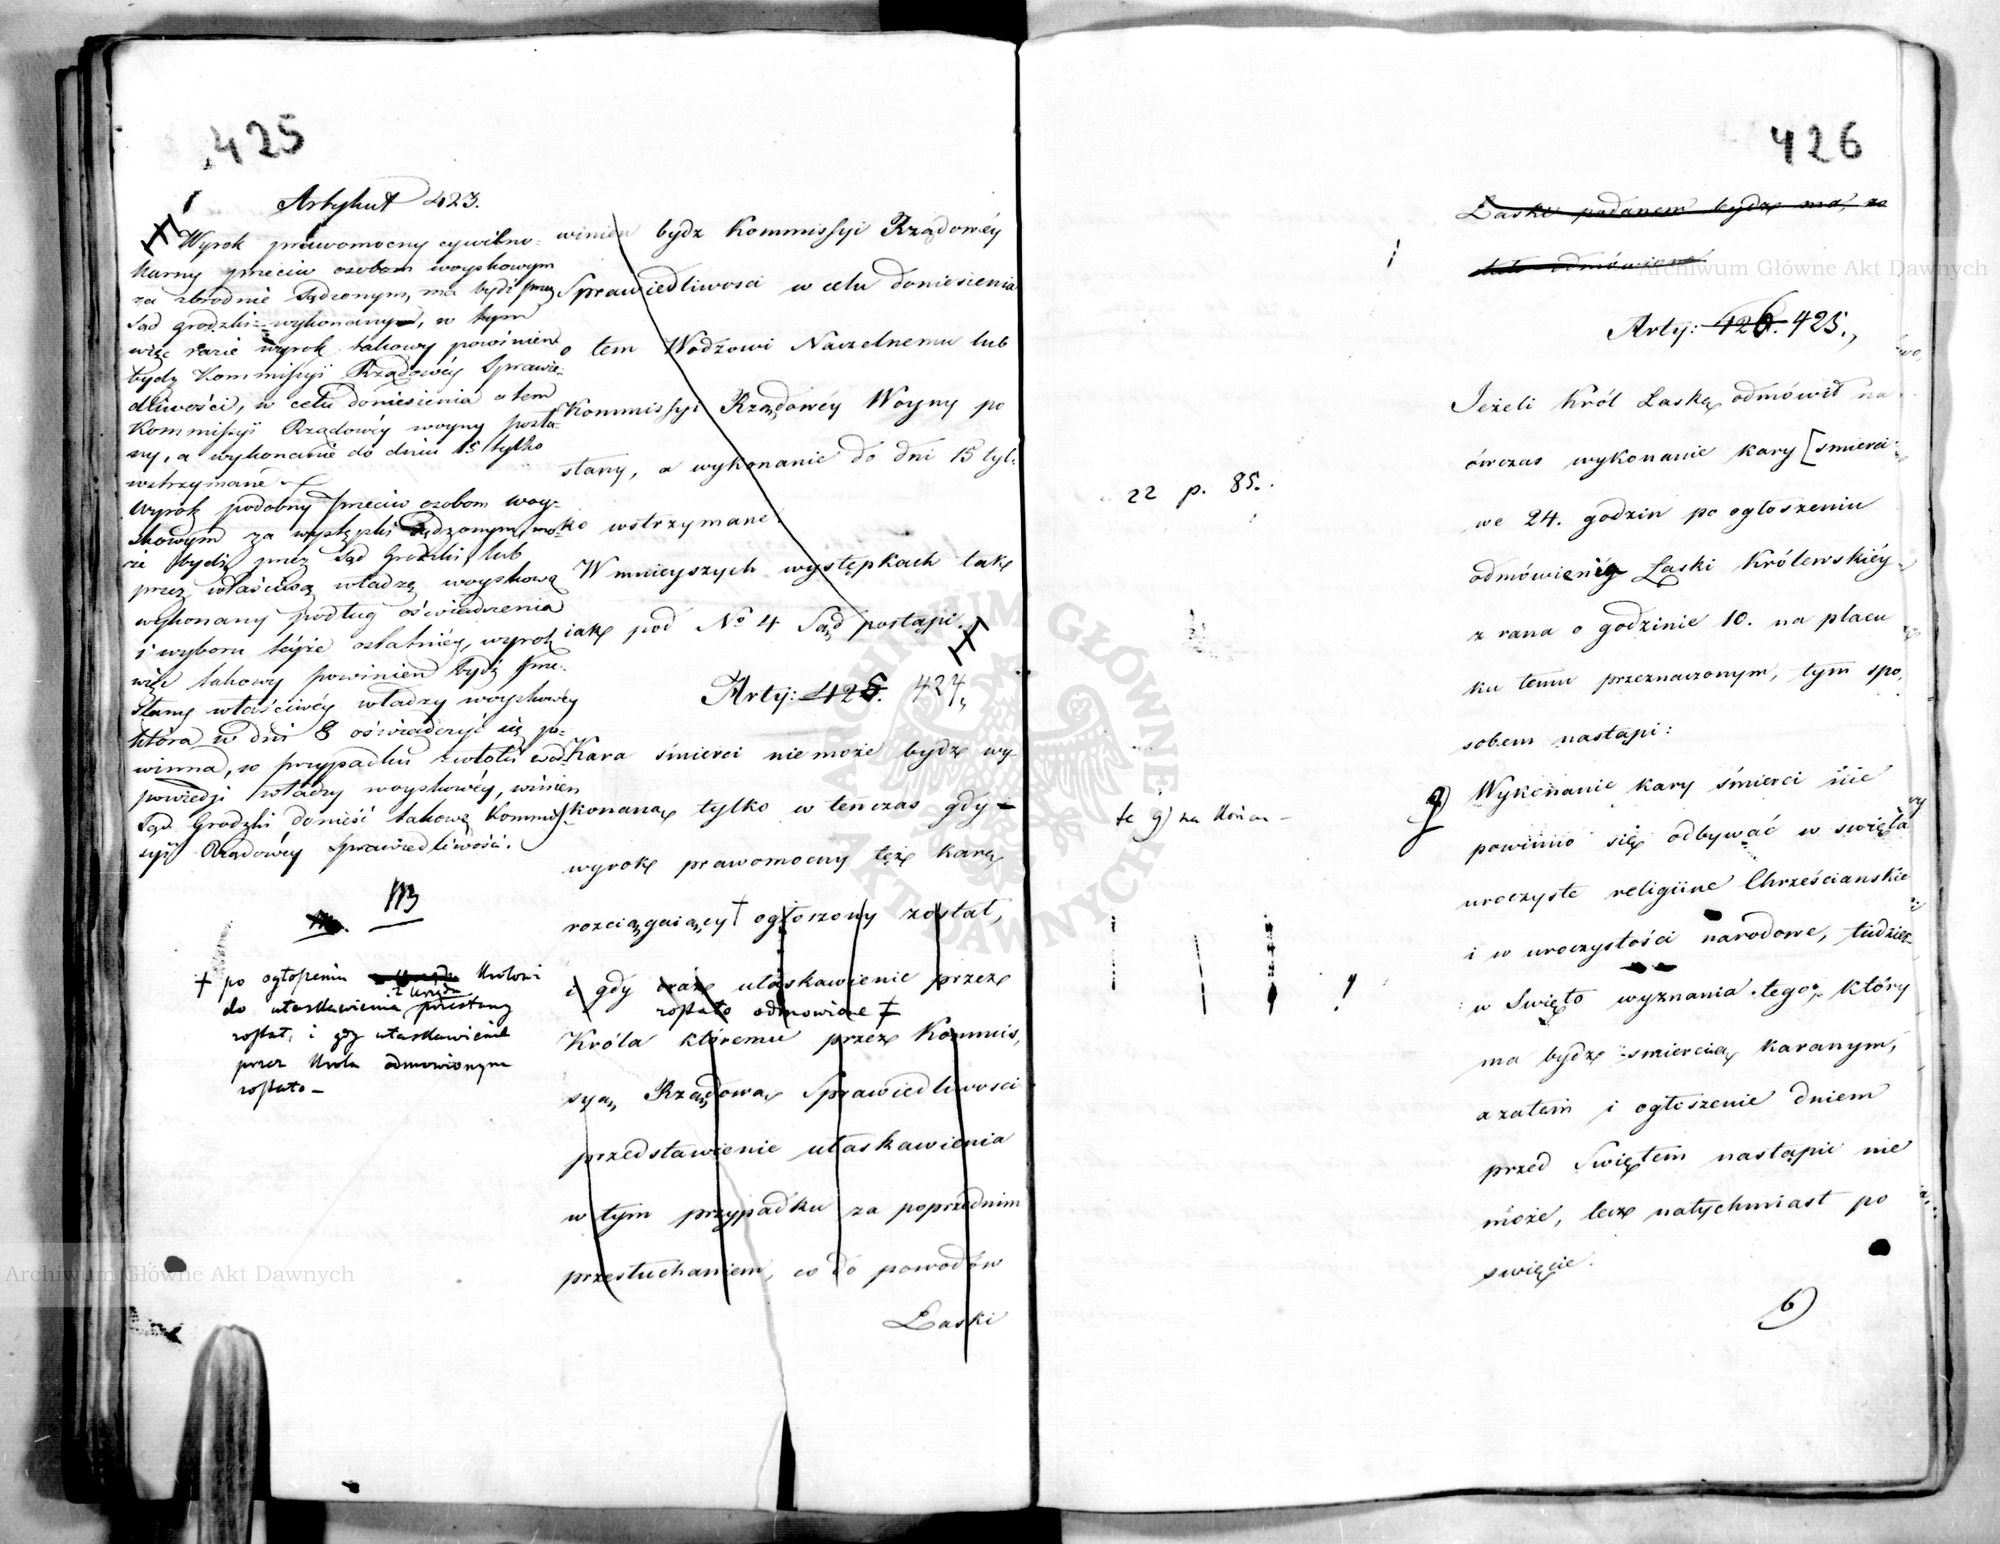 425
Artykuł 423.
Wyrok prawomocny cywilno-
karny przeciw osobom woyskowym
za zbrodnie sądzonym, ma bydź przez
Sąd grodzki wykonanym, w tym
więc razie wyrok takowy powinien
bydź Kommissyi Rządowéy Sprawie-
dliwości, w celu doniesienia o tem
Kommissyi Rządowéy woyny posła-
ny, a wykonanie do dniu 15 tylko
wstrzymane
Wyrok podobny przeciw osobom woy-
skowym za występki sądzonym, mo-
że bydź przez Sąd Grodzki, lub
przez właściwą władzę woyskową
wykonany podług oświadczenia
i wyboru téyże ostatniéy, wyrok
więc takowy powinien bydź prze-
słany właściwéy władzy woyskowéy
która w dni 8 oświadczyć się po-
winna, w przypadku zwłoki
powiedzi władzy woyskowéy, winien
Sąd Grodzki donieść takową Kommis-
syi Rządowéy Sprawiedliwości.
+ po ogłoszeniu Krolowi
z Urzędu
do ułaskawienia przesłany
został, i gdy ułaskawienie
przez Krola odmowionym
zostało –
winien bydz Kommissyi Rządowéy
Sprawiedliwosci w celu doniesienia
o tem Wodzowi Naczelnemu lub
Kommissyi Rządowéy Woyny po
słany, a wykonanie do dni 15 tyl-
ko wstrzymane.
W mnieyszych występkach tak
iak pod No 4 Sąd postąpi.
Arty: 425. 424,
Kara śmierci nie może bydz wy-
konana tylko w tenczas gdy
wyrok prawomocny też karę
rozciągaiący + ogłoszony został,
i gdy oraz ułaskawienie przez
zostało odmowione +
Króla któremu przez Kommis-
syą Rządową Sprawiedliwosci
przedstawienie ułaskawienia
w tym przypadku za poprzednim
przesłuchaniem, co do powodów
Łaski
426
Łaski podanem bydz ma, za
odmówione
Arty: 426. 425.,
Jeżeli Król Łaskę odmówił na-
ówczas wykonanie kary [smierci
22 p. 85.
we 24. godzin po ogłoszeniu
odmówienia Łaski Królewskiéy
z rana o godzinie 10. na placu
ku temu przeznaczonym, tym spo
sobem nastąpi:
te g) na końcu –
g) Wykonanie kary śmierci nie
powinno się odbywać w swięta
uroczyste religiine Chrześcianskie
i w uroczystości narodowe, tudzież
w Swięto wyznania tego, który
ma bydz smiercią karanym,
a zatem i ogłoszenie dniem
przed Swiętem nastąpic nie
może, lecz natychmiast po
swięcie.
b)
Archiwum Główne Akt Dawnych
Archiwum Główne Akt Dawnych
ARCHIWUM GŁÓWNE AKT DAWNYCH